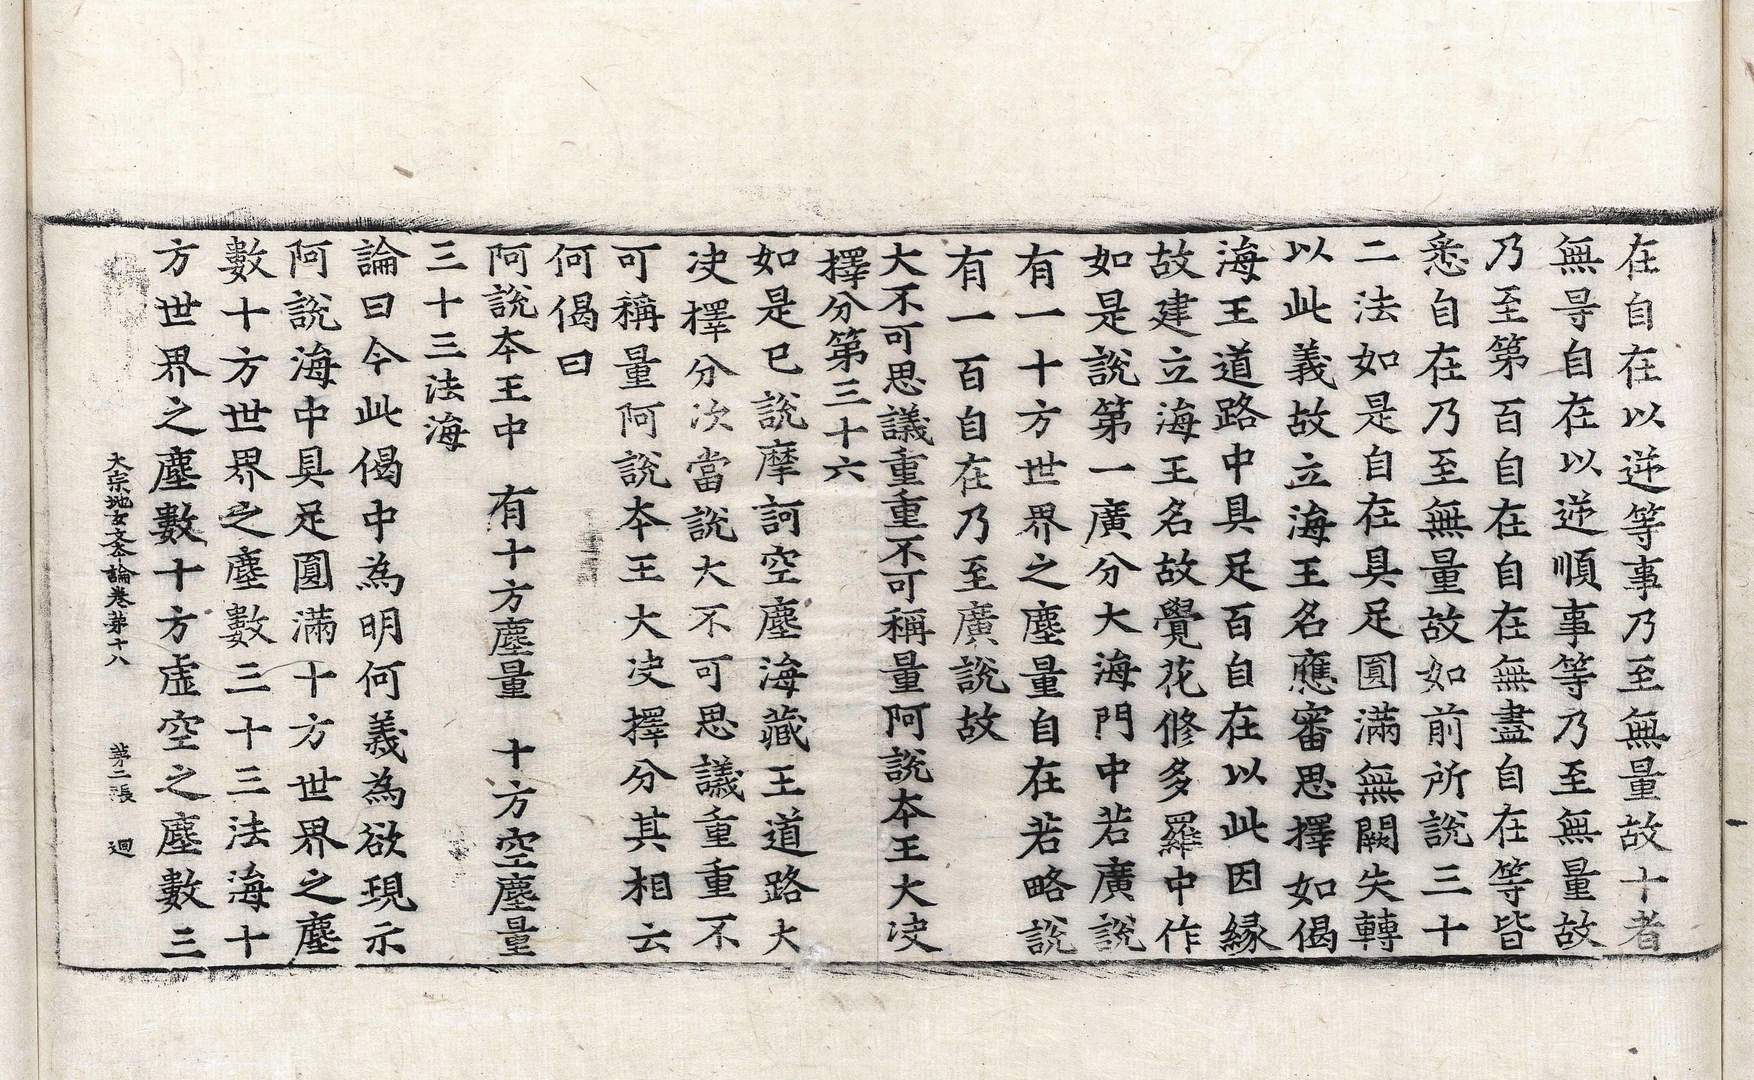 在自在以逆等事乃至無量故十者
無㝵自在以逆順事等乃至無量故
乃至第百自在自在無盡自在等皆
悉自在乃至無量故如前所說三十
二法如是自在具足圓滿無闕失轉
以此義故立海王名應審思擇如偈
海王道路中具足百自在以此因緣
故建立海王名故覺花修多羅中作
如是說第一廣分大海門中若廣說
有一十方世界之塵量自在若略說
有一百自在乃至廣說故
大不可思議重重不可稱量阿說本王大决
擇分第三十六
如是已說摩訶空塵海藏王道路大
决擇分次當說大不可思議重重不
可稱量阿說本王大决擇分其相云
何偈曰
阿說本王中　有十方塵量　十方空塵量
三十三法海
論曰今此偈中為明何義為欲現示
阿說海中具足圓滿十方世界之塵
數十方世界之塵數三十三法海十
方世界之塵數十方虛空之塵數三
大宗地玄文本論卷第十八　第二張　迴